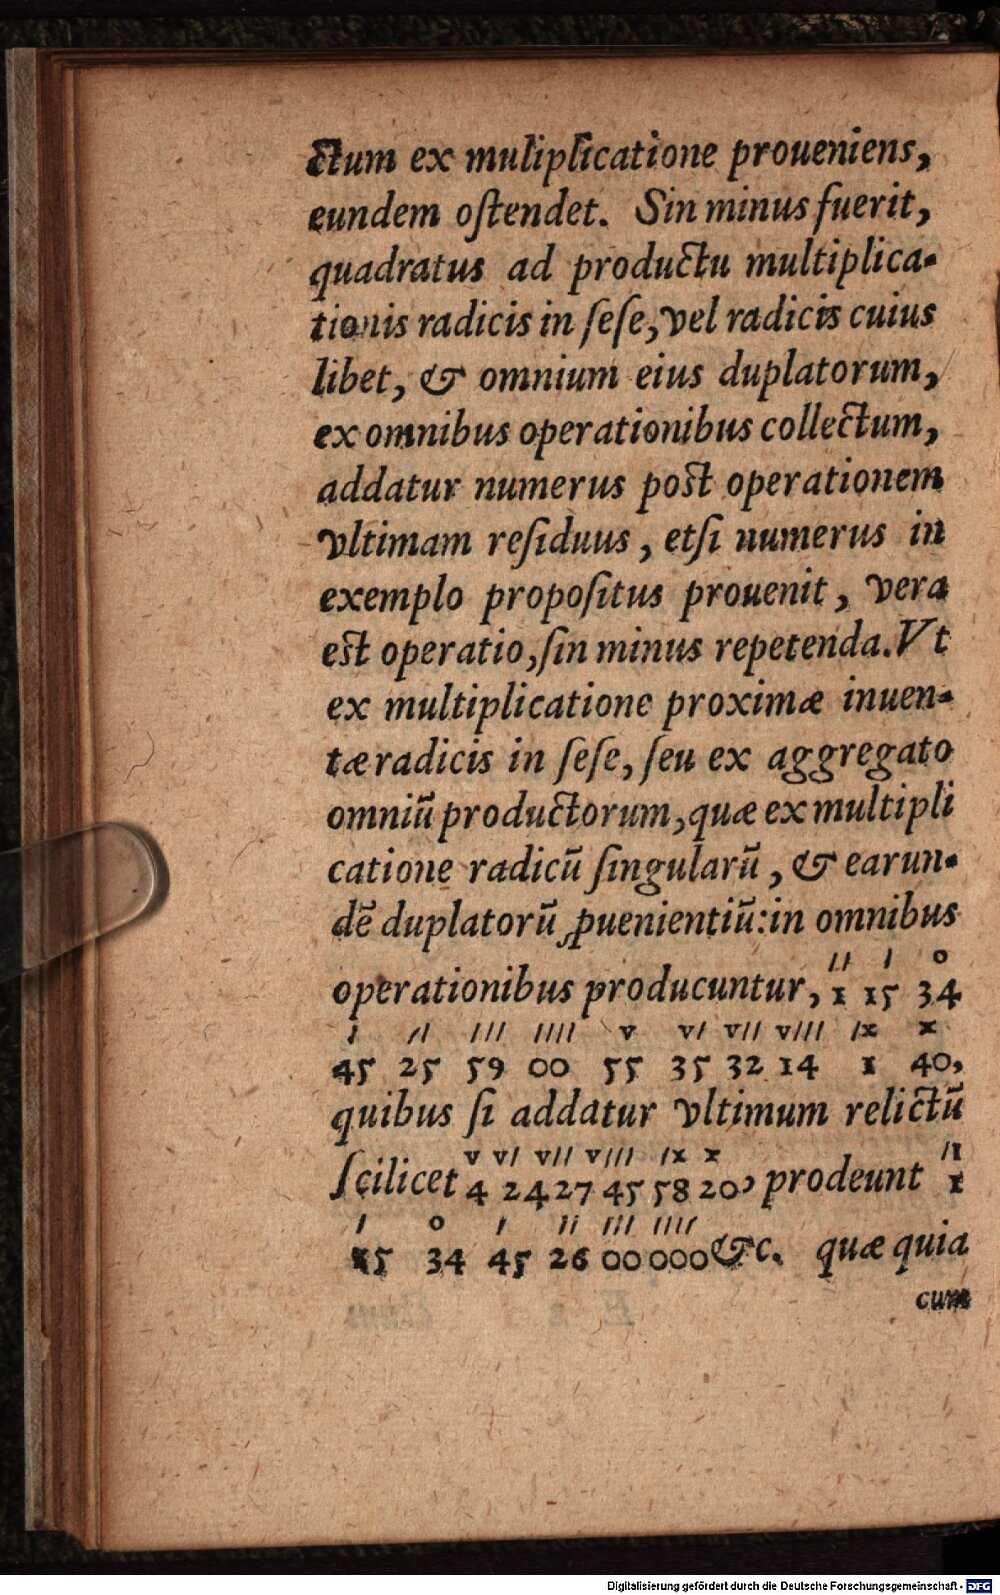 ctum ex muliplicatione proueniens,
eundem oſtendet. Sin minus fuerit,
quadratus ad productu multiplica-
tionis radicis in ſeſe, vel radicis cuius
libet, & omnium eius duplatorum,
ex omnibus operationibus collectum,
addatur numerus post operationem
vltimam reſiduus, etſi numerus in
exemplo propoſitus prouenit, vera
est operatio, ſin minus repetenda. Vt
ex multiplicatione proximæ inuen-
tæ radicis in ſeſe, ſeu ex aggregato
omniū productorum, quæ ex multipli
catione radicū ſingularū, & earun-
dē duplatorū ꝓuenientiū: in omnibus
// / o
operationibus producuntur, 1 15 34
/ // /// //// v v/ v// v/// /x x
45 25 59 00 55 35 32 14 1 40,
quibus ſi addatur vltimum relictū
v v/ v// v/// /x x //
ſcilicet 4 24 27 45 58 20, prodeunt 1
/ o / // /// ////
15 34 45 26 00 000 &c. quæ quia
cum
Digitalisierung gefördert durch die Deutsche Forschungsgemeinschaft - DFG